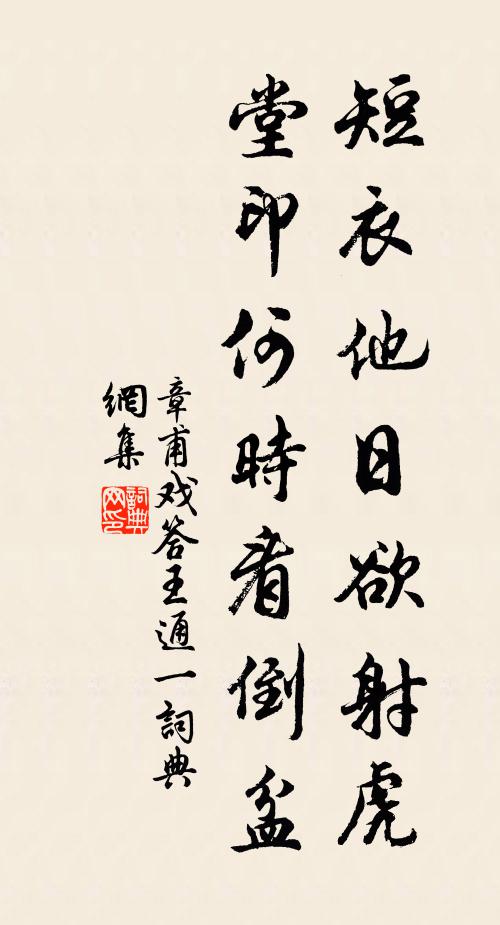 短衣他日欲射虎
堂印何時看倒盆
章甫戏答王通一詞典
網集
詞典網印